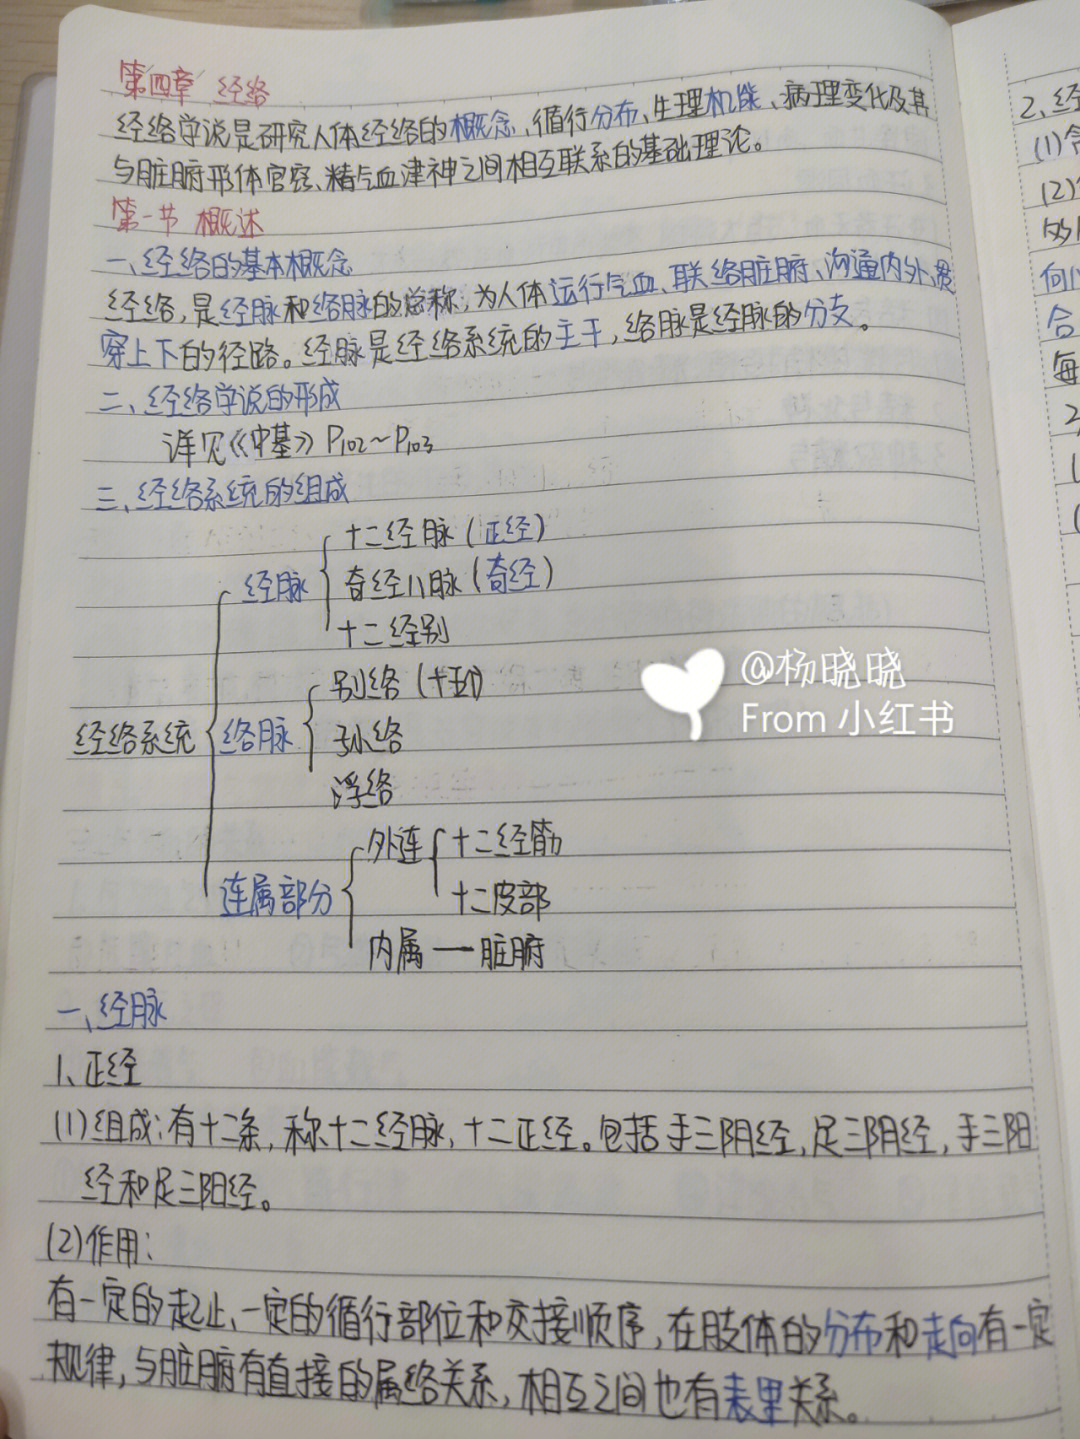 第四章 经络
经络学说是研究人体经络的概念、循行分布、生理机能、病理变化及其
与脏腑形体官窍、精气血津神之间相互联系的基础理论。
第一节 概述
一、经络的基本概念
经络,是经脉和络脉的总称,为人体运行气血、联络脏腑、沟通内外、贯
穿上下的径路。经脉是经络系统的主干,络脉是经脉的分支。
二、经络学说的形成
详见《中基》P102~P103
三、经络系统的组成
十二经脉(正经)
经脉 奇经八脉(奇经)
十二经别
别络(十五)
经络系统 络脉 孙络
浮络
外连 十二经筋
连属部分 十二皮部
内属 — 脏腑
一、经脉
1、正经
(1)组成:有十二条,称十二经脉,十二正经。包括手三阴经,足三阴经,手三阳
经和足三阳经。
(2)作用:
有一定的起止、一定的循行部位和交接顺序,在肢体的分布和走向有一定
规律,与脏腑有直接的属络关系,相互之间也有表里关系。
@杨晓晓
From 小红书
2、经
(1)
(2)
何
合
每
2
(
(